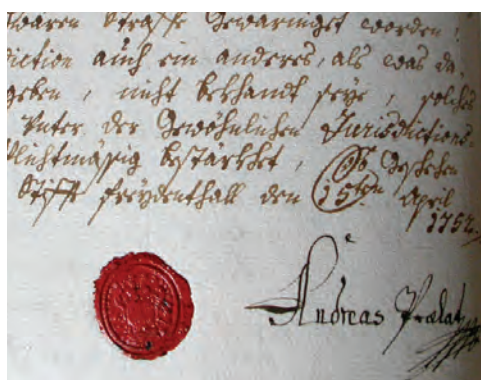 wären Straffe Gewarniget worden,
diction auch ein anderes, als was da
geben, nicht bekhant seye, solches
Vnter der Gewöhnlichen Jurisdictions-
Pflichtmäsig bestärkhet, Geschehen
Stifft Freÿdenthall den 15ten April
1752.
Andreas Prælat